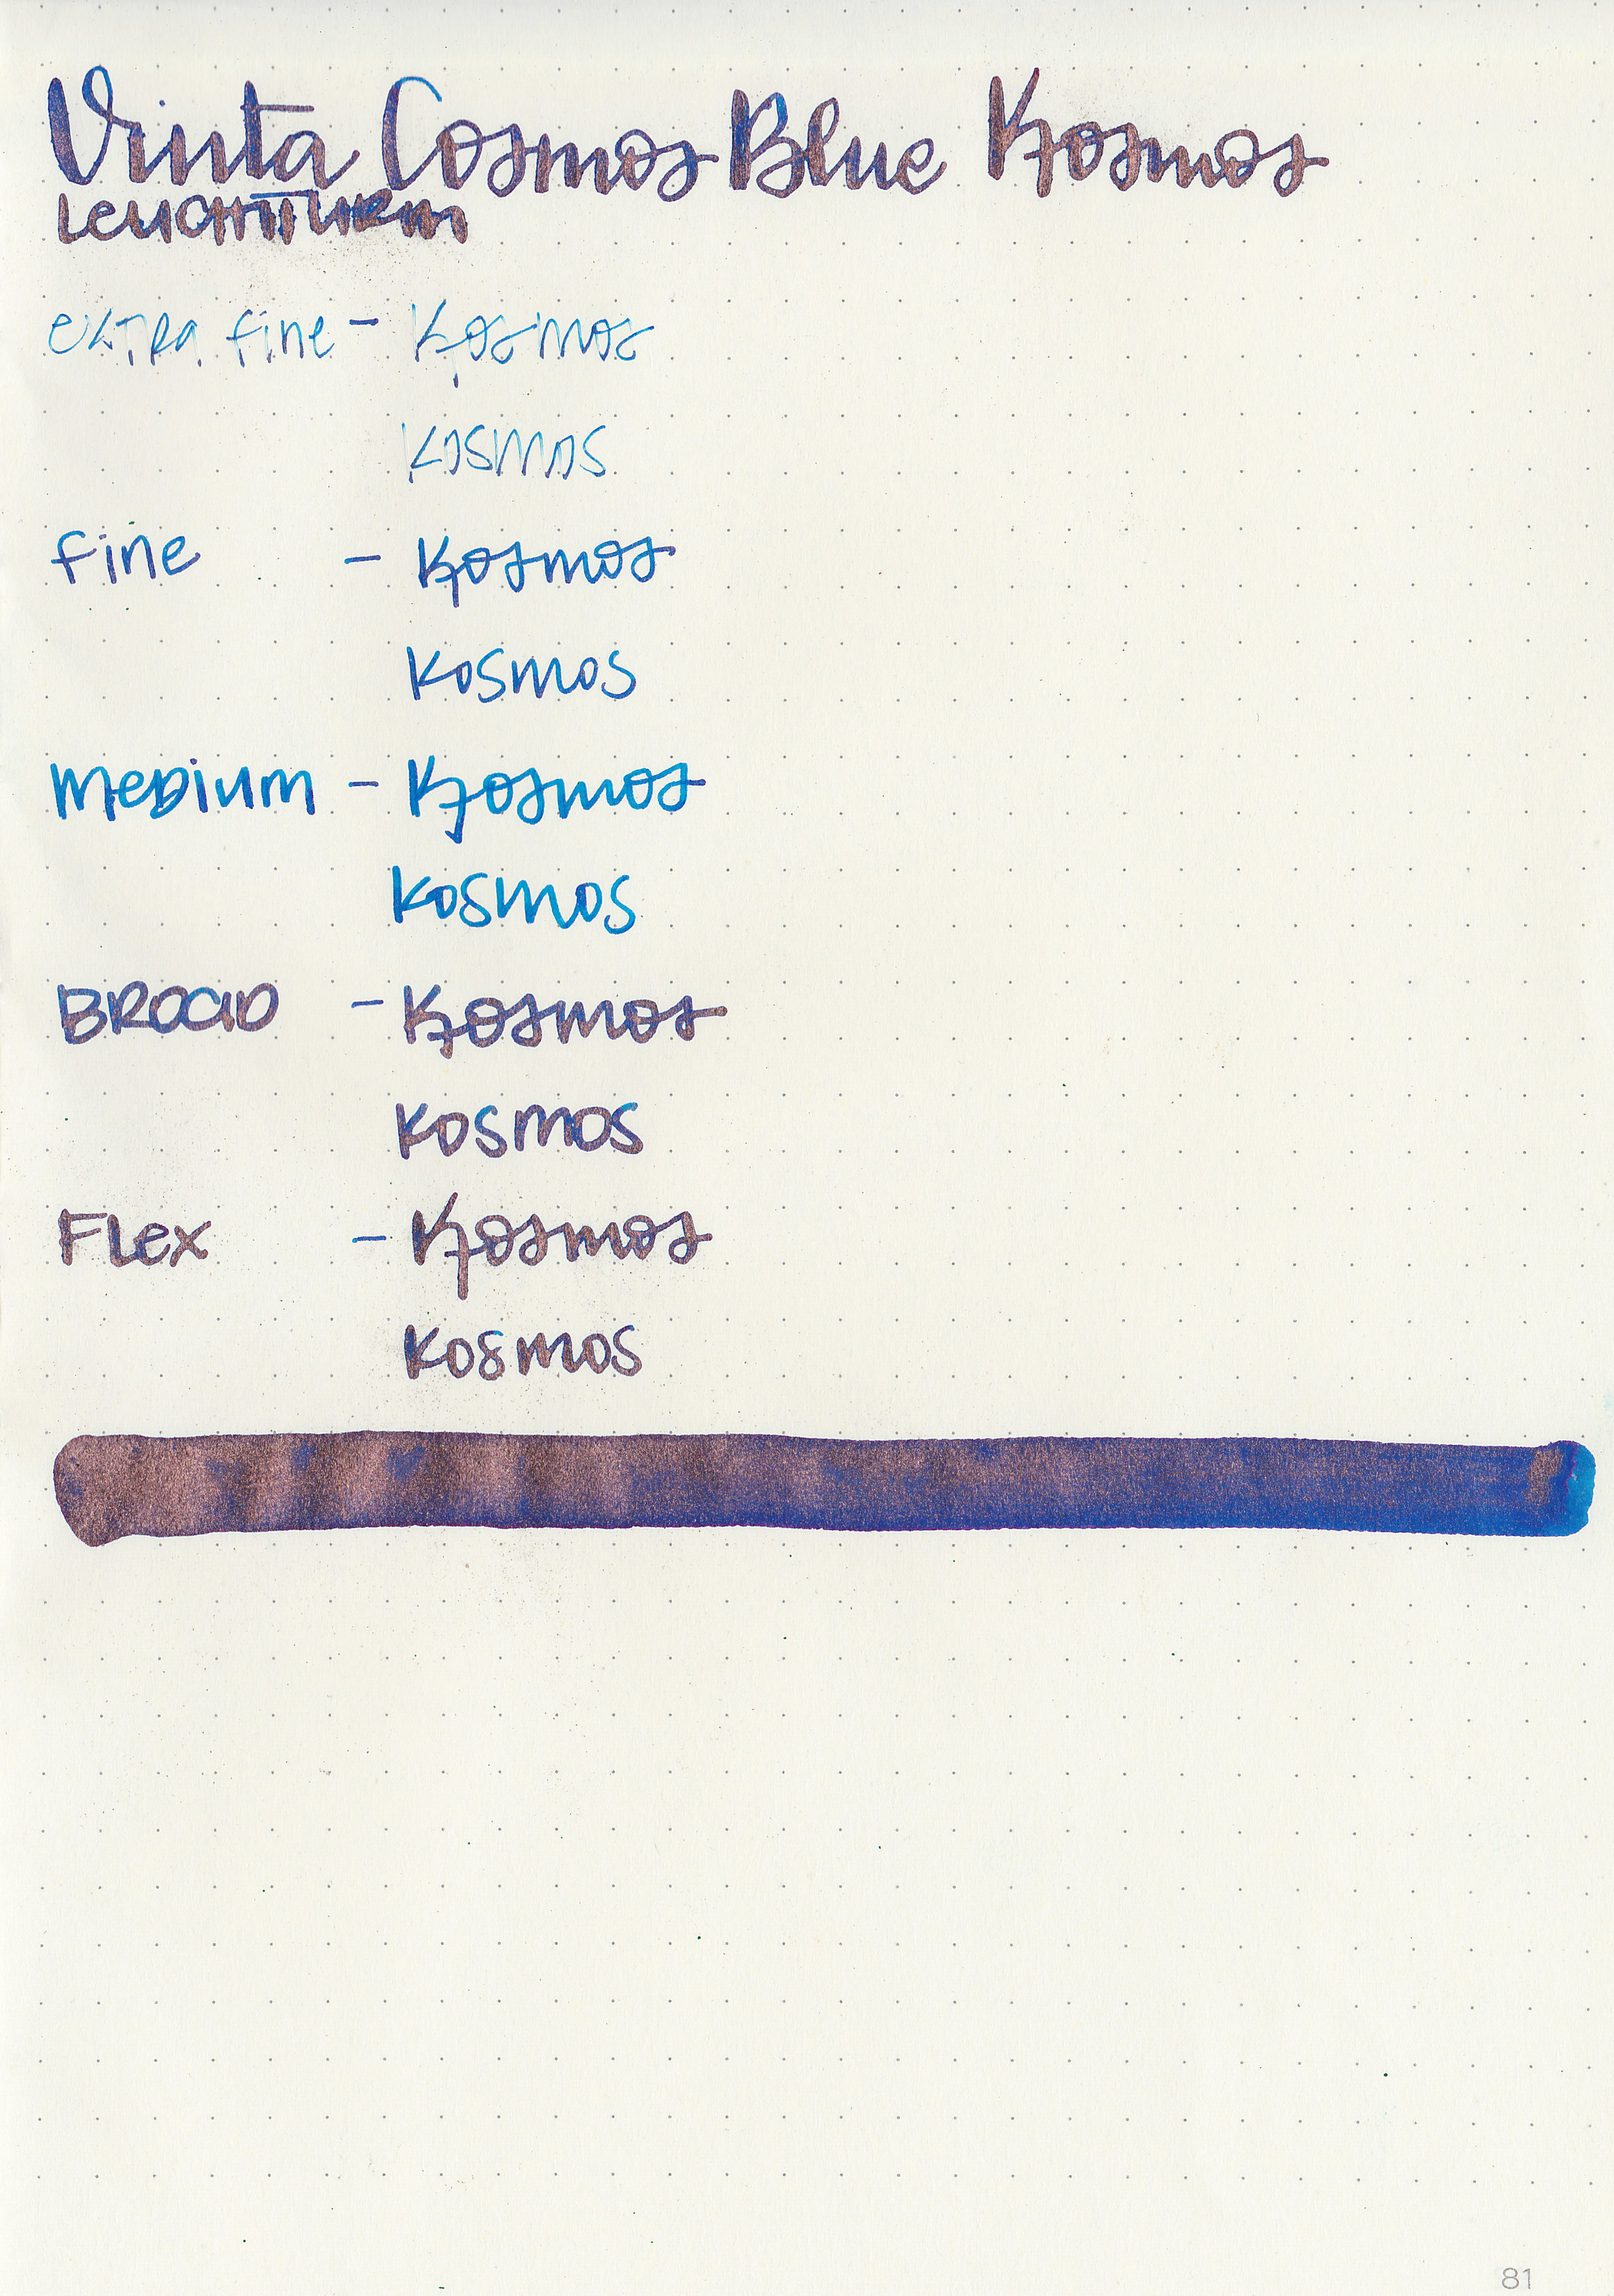 Vinta Cosmos Blue Kosmos
Leuchtturm
extra fine - Kosmos
Kosmos
fine - Kosmos
Kosmos
Medium - Kosmos
Kosmos
BROAD - Kosmos
Kosmos
Flex - Kosmos
Kosmos
81